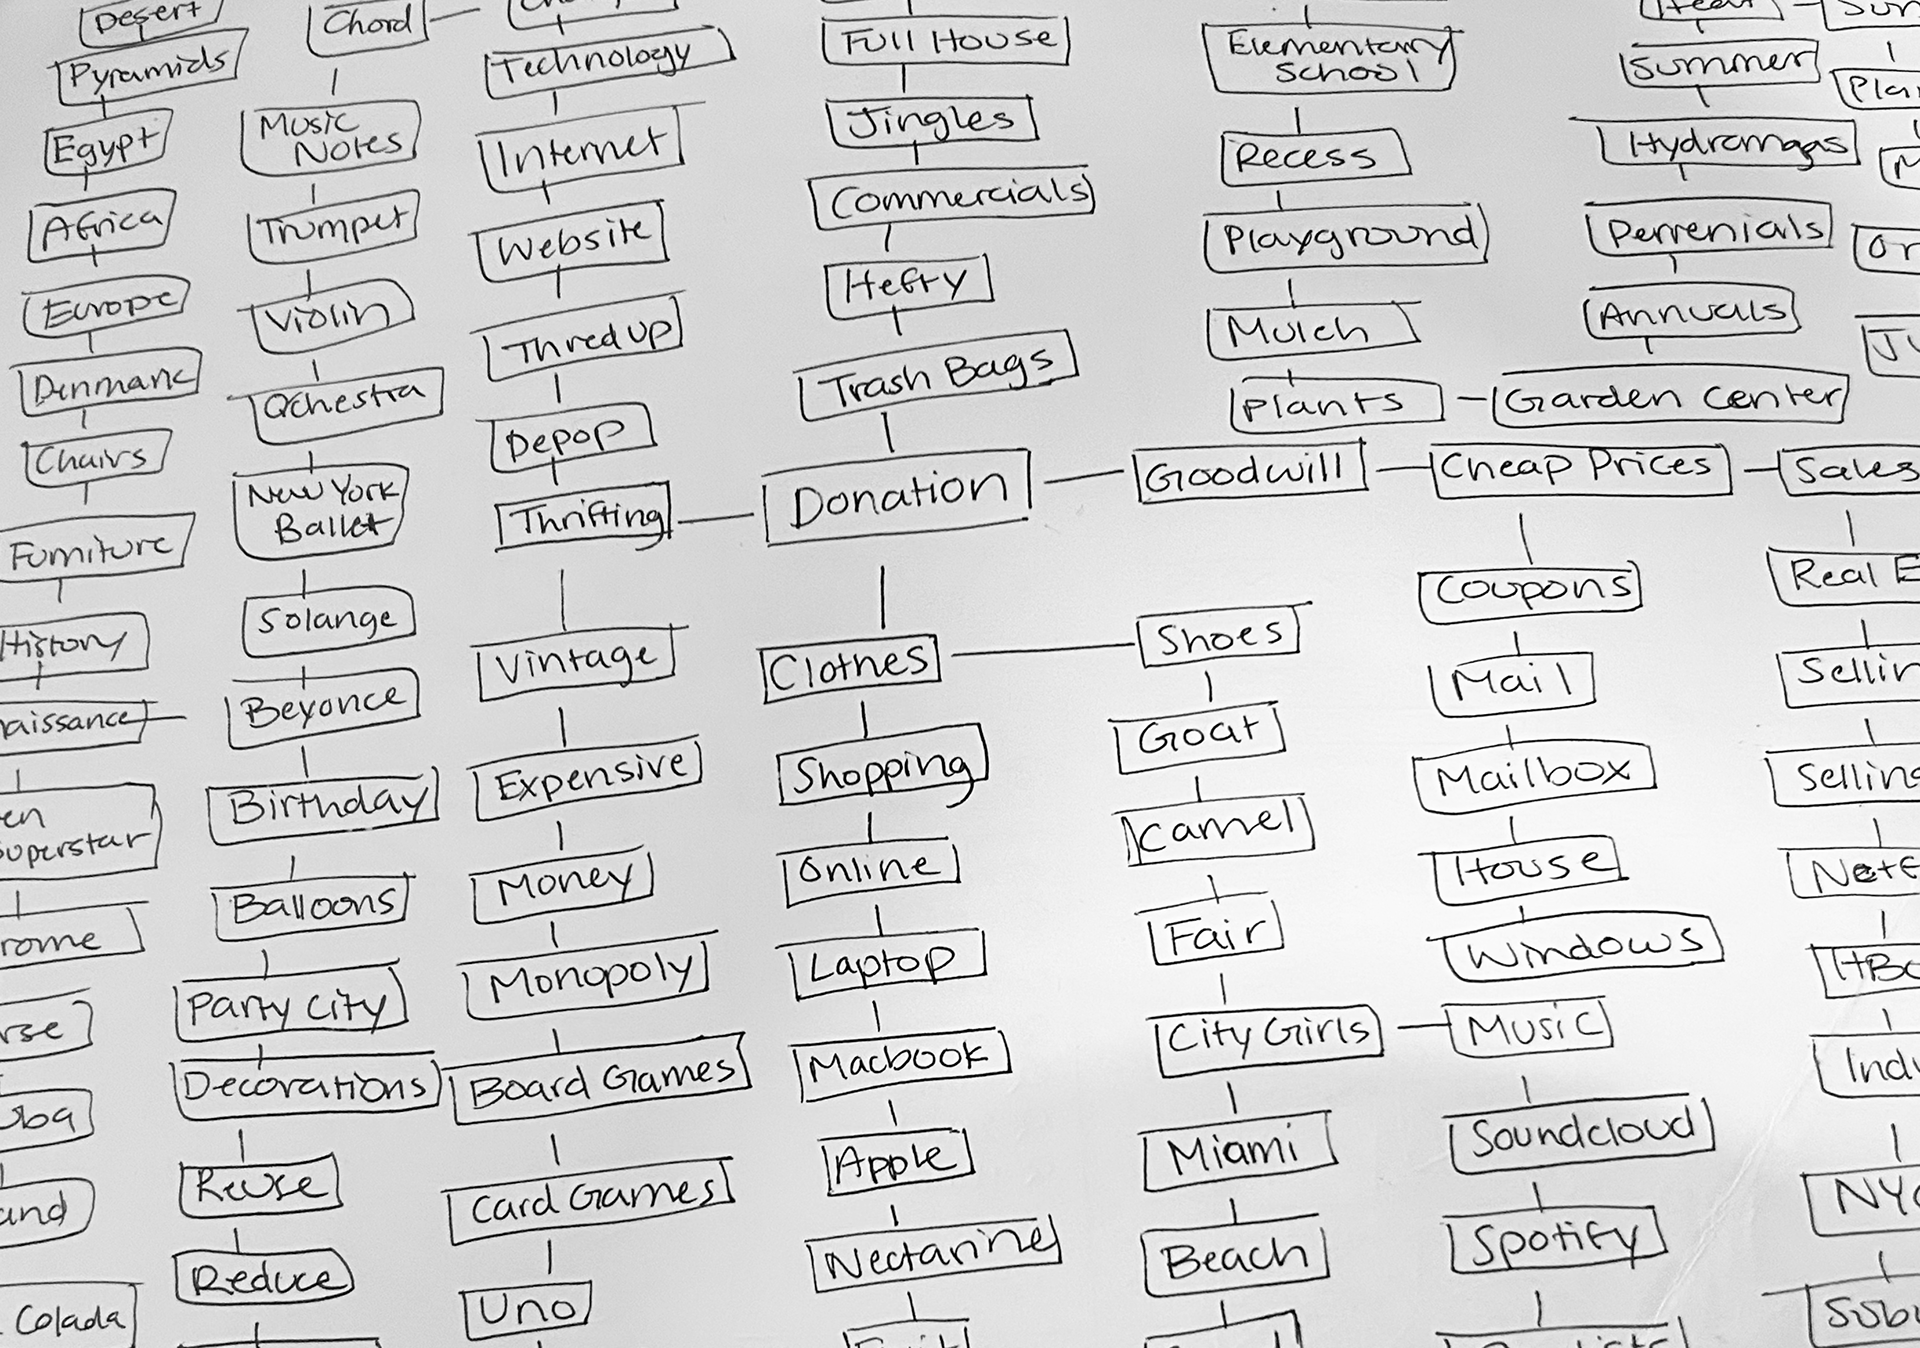 Desert
Pyramids
Egypt
Africa
Europe
Denmark
Chairs
Furniture
History
naissance
en
Superstar
rome
rse
uba
and
Colada
Chord
Music
Notes
Trumpet
Violin
Orchestra
New York
Ballet
Solange
Beyonce
Birthday
Balloons
Party City
Decorations
Reuse
Reduce
Technology
Internet
Website
Thredup
Depop
Thrifting
Vintage
Expensive
Money
Monopoly
Board Games
Card Games
Uno
Full House
Jingles
Commercials
Hefty
Trash Bags
Donation
Clothes
Shopping
Online
Laptop
Macbook
Apple
Nectarine
Elementary
School
Recess
Playground
Mulch
Plants
Garden Center
Goodwill
Cheap Prices
Sales
Shoes
Goat
Camel
Fair
City Girls
Music
Miami
Beach
Coupons
Mail
Mailbox
House
Windows
Soundcloud
Spotify
Summer
Hydrangas
Perrenials
Annuals
Real E
Sellin
Selling
Indu
NYC
Subu